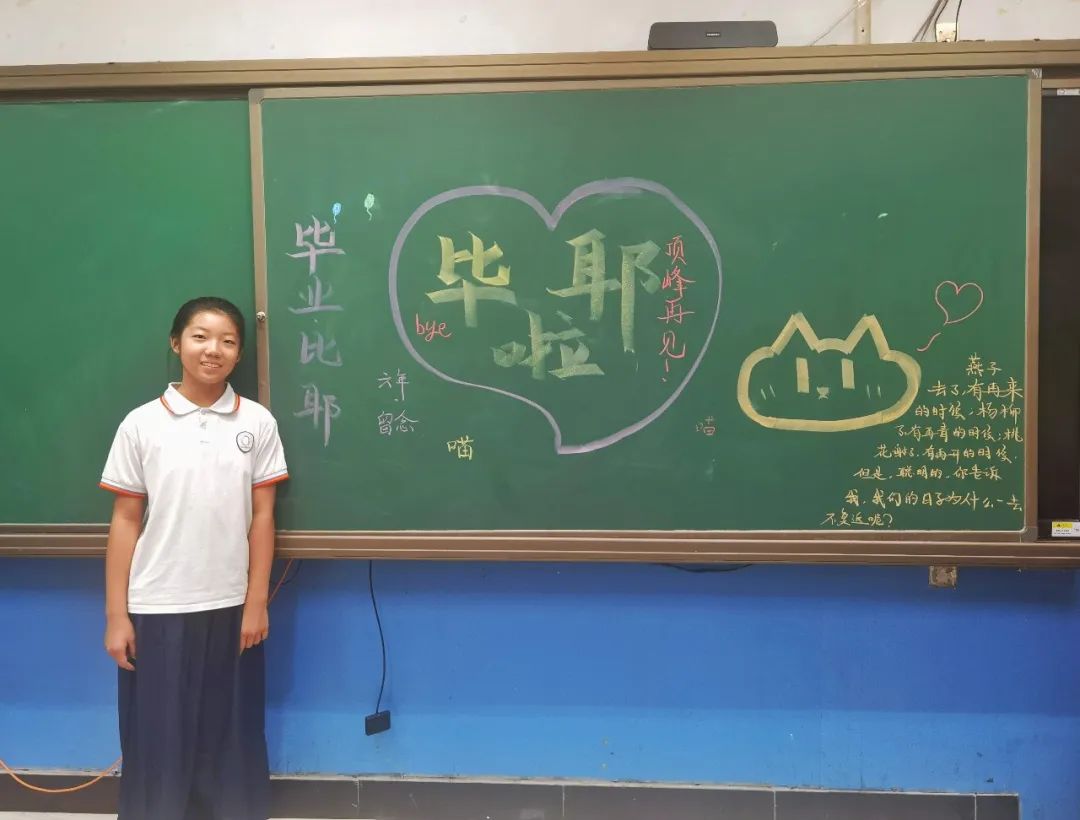 毕业比耶
毕耶
啦
bye
顶峰再见!
六年
留念
喵
喵
燕子
去了,有再来
的时候;杨柳
了,有再青的时候;桃
花谢了,有再开的时候.
但是,聪明的,你告诉
我,我们的日子为什么一去
不复返呢?